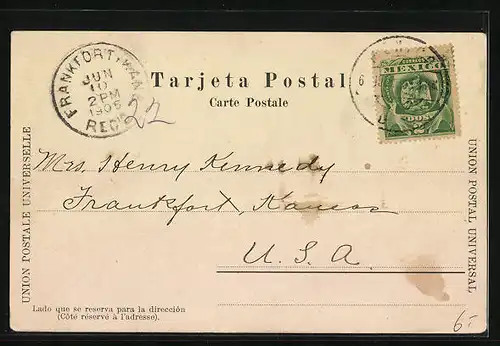 FRANKFORT, KANS.
JUN
10
2 PM
1906
REC'D
22
Tarjeta Postal
Carte Postale
MEXICO
UNION POSTALE UNIVERSELLE
UNION POSTAL UNIVERSAL
Mrs. Henry Kennedy
Frankfort, Kansas
U. S. A.
Lado que se reserva para la dirección
(Côté réservé à l'adresse).
6-